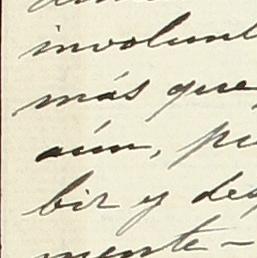 involunt
más que
aún, pu
bir y des
mente-